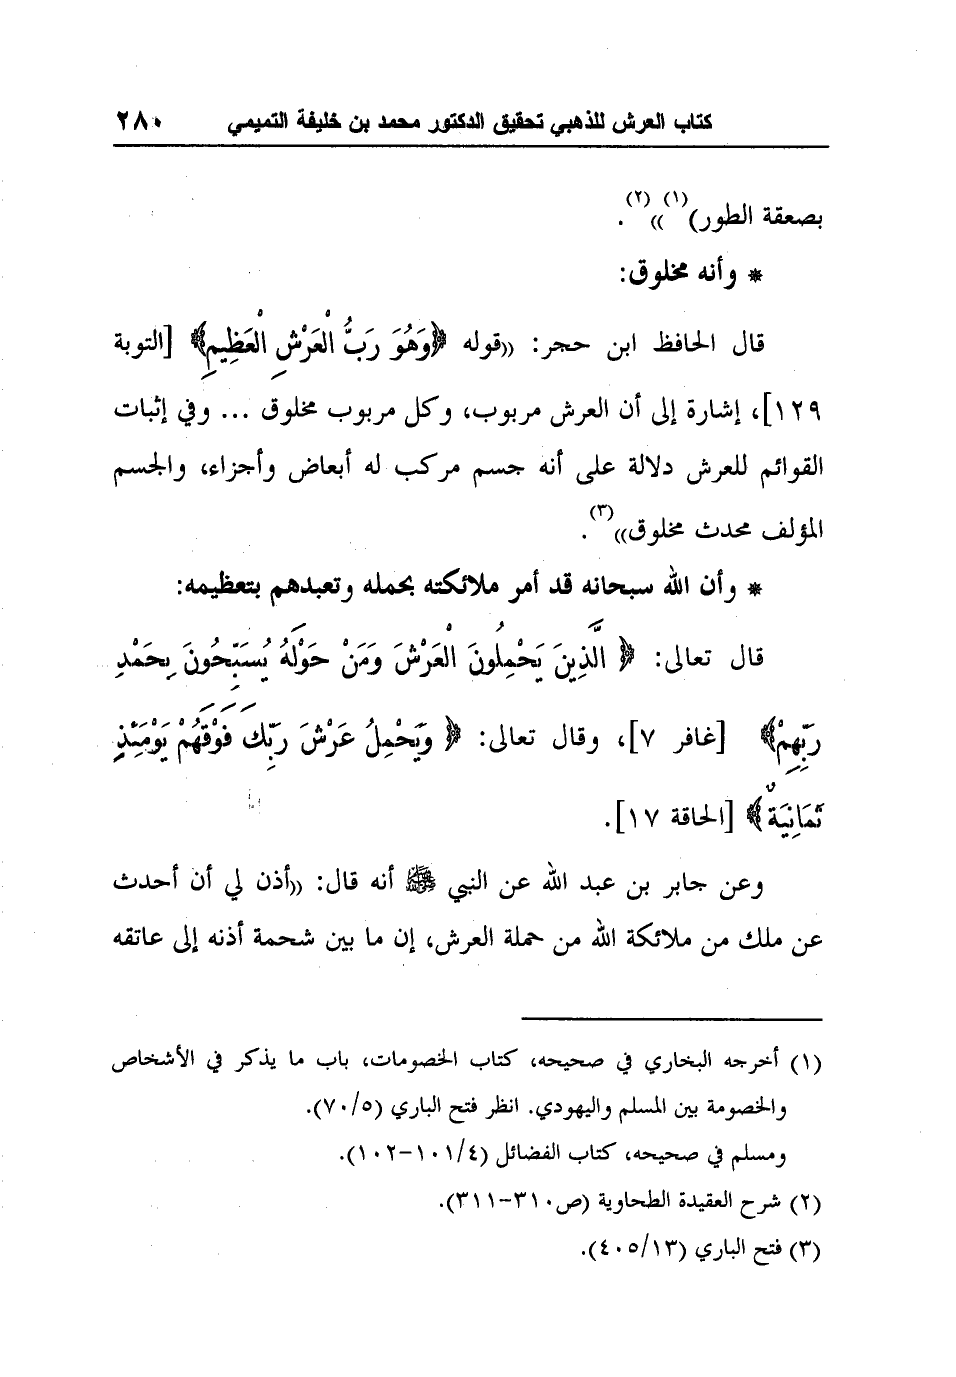 كتاب العرش للذهبي تحقيق الدكتور محمد بن خليفة التميمي ٢٨٠
بصعقة الطور)(١)»(٢).
* وأنه مخلوق:
قال الحافظ ابن حجر: «قوله ﴿وَهُوَ رَبُّ الْعَرْشِ الْعَظِيمِ﴾ [التوبة
١٢٩]، إشارة إلى أن العرش مربوب، وكل مربوب مخلوق ... وفي إثبات
القوائم للعرش دلالة على أنه جسم مركب له أبعاض وأجزاء، والجسم
المؤلف محدث مخلوق»(٣).
* وأن الله سبحانه قد أمر ملائكته بحمله وتعبدهم بتعظيمه:
قال تعالى: ﴿الَّذِينَ يَحْمِلُونَ الْعَرْشَ وَمَنْ حَوْلَهُ يُسَبِّحُونَ بِحَمْدِ
رَبِّهِمْ﴾ [غافر ٧]، وقال تعالى: ﴿وَيَحْمِلُ عَرْشَ رَبِّكَ فَوْقَهُمْ يَوْمَئِذٍ
ثَمَانِيَةٌ﴾ [الحاقة ١٧].
وعن جابر بن عبد الله عن النبي ﷺ أنه قال: «أذن لي أن أحدث
عن ملك من ملائكة الله من حملة العرش، إن ما بين شحمة أذنه إلى عاتقه
(١) أخرجه البخاري في صحيحه، كتاب الخصومات، باب ما يذكر في الأشخاص
والخصومة بين المسلم واليهودي. انظر فتح الباري (٧٠/٥).
ومسلم في صحيحه، كتاب الفضائل (١٠١/٤-١٠٢).
(٢) شرح العقيدة الطحاوية (ص٣١٠-٣١١).
(٣) فتح الباري (٤٠٥/١٣).